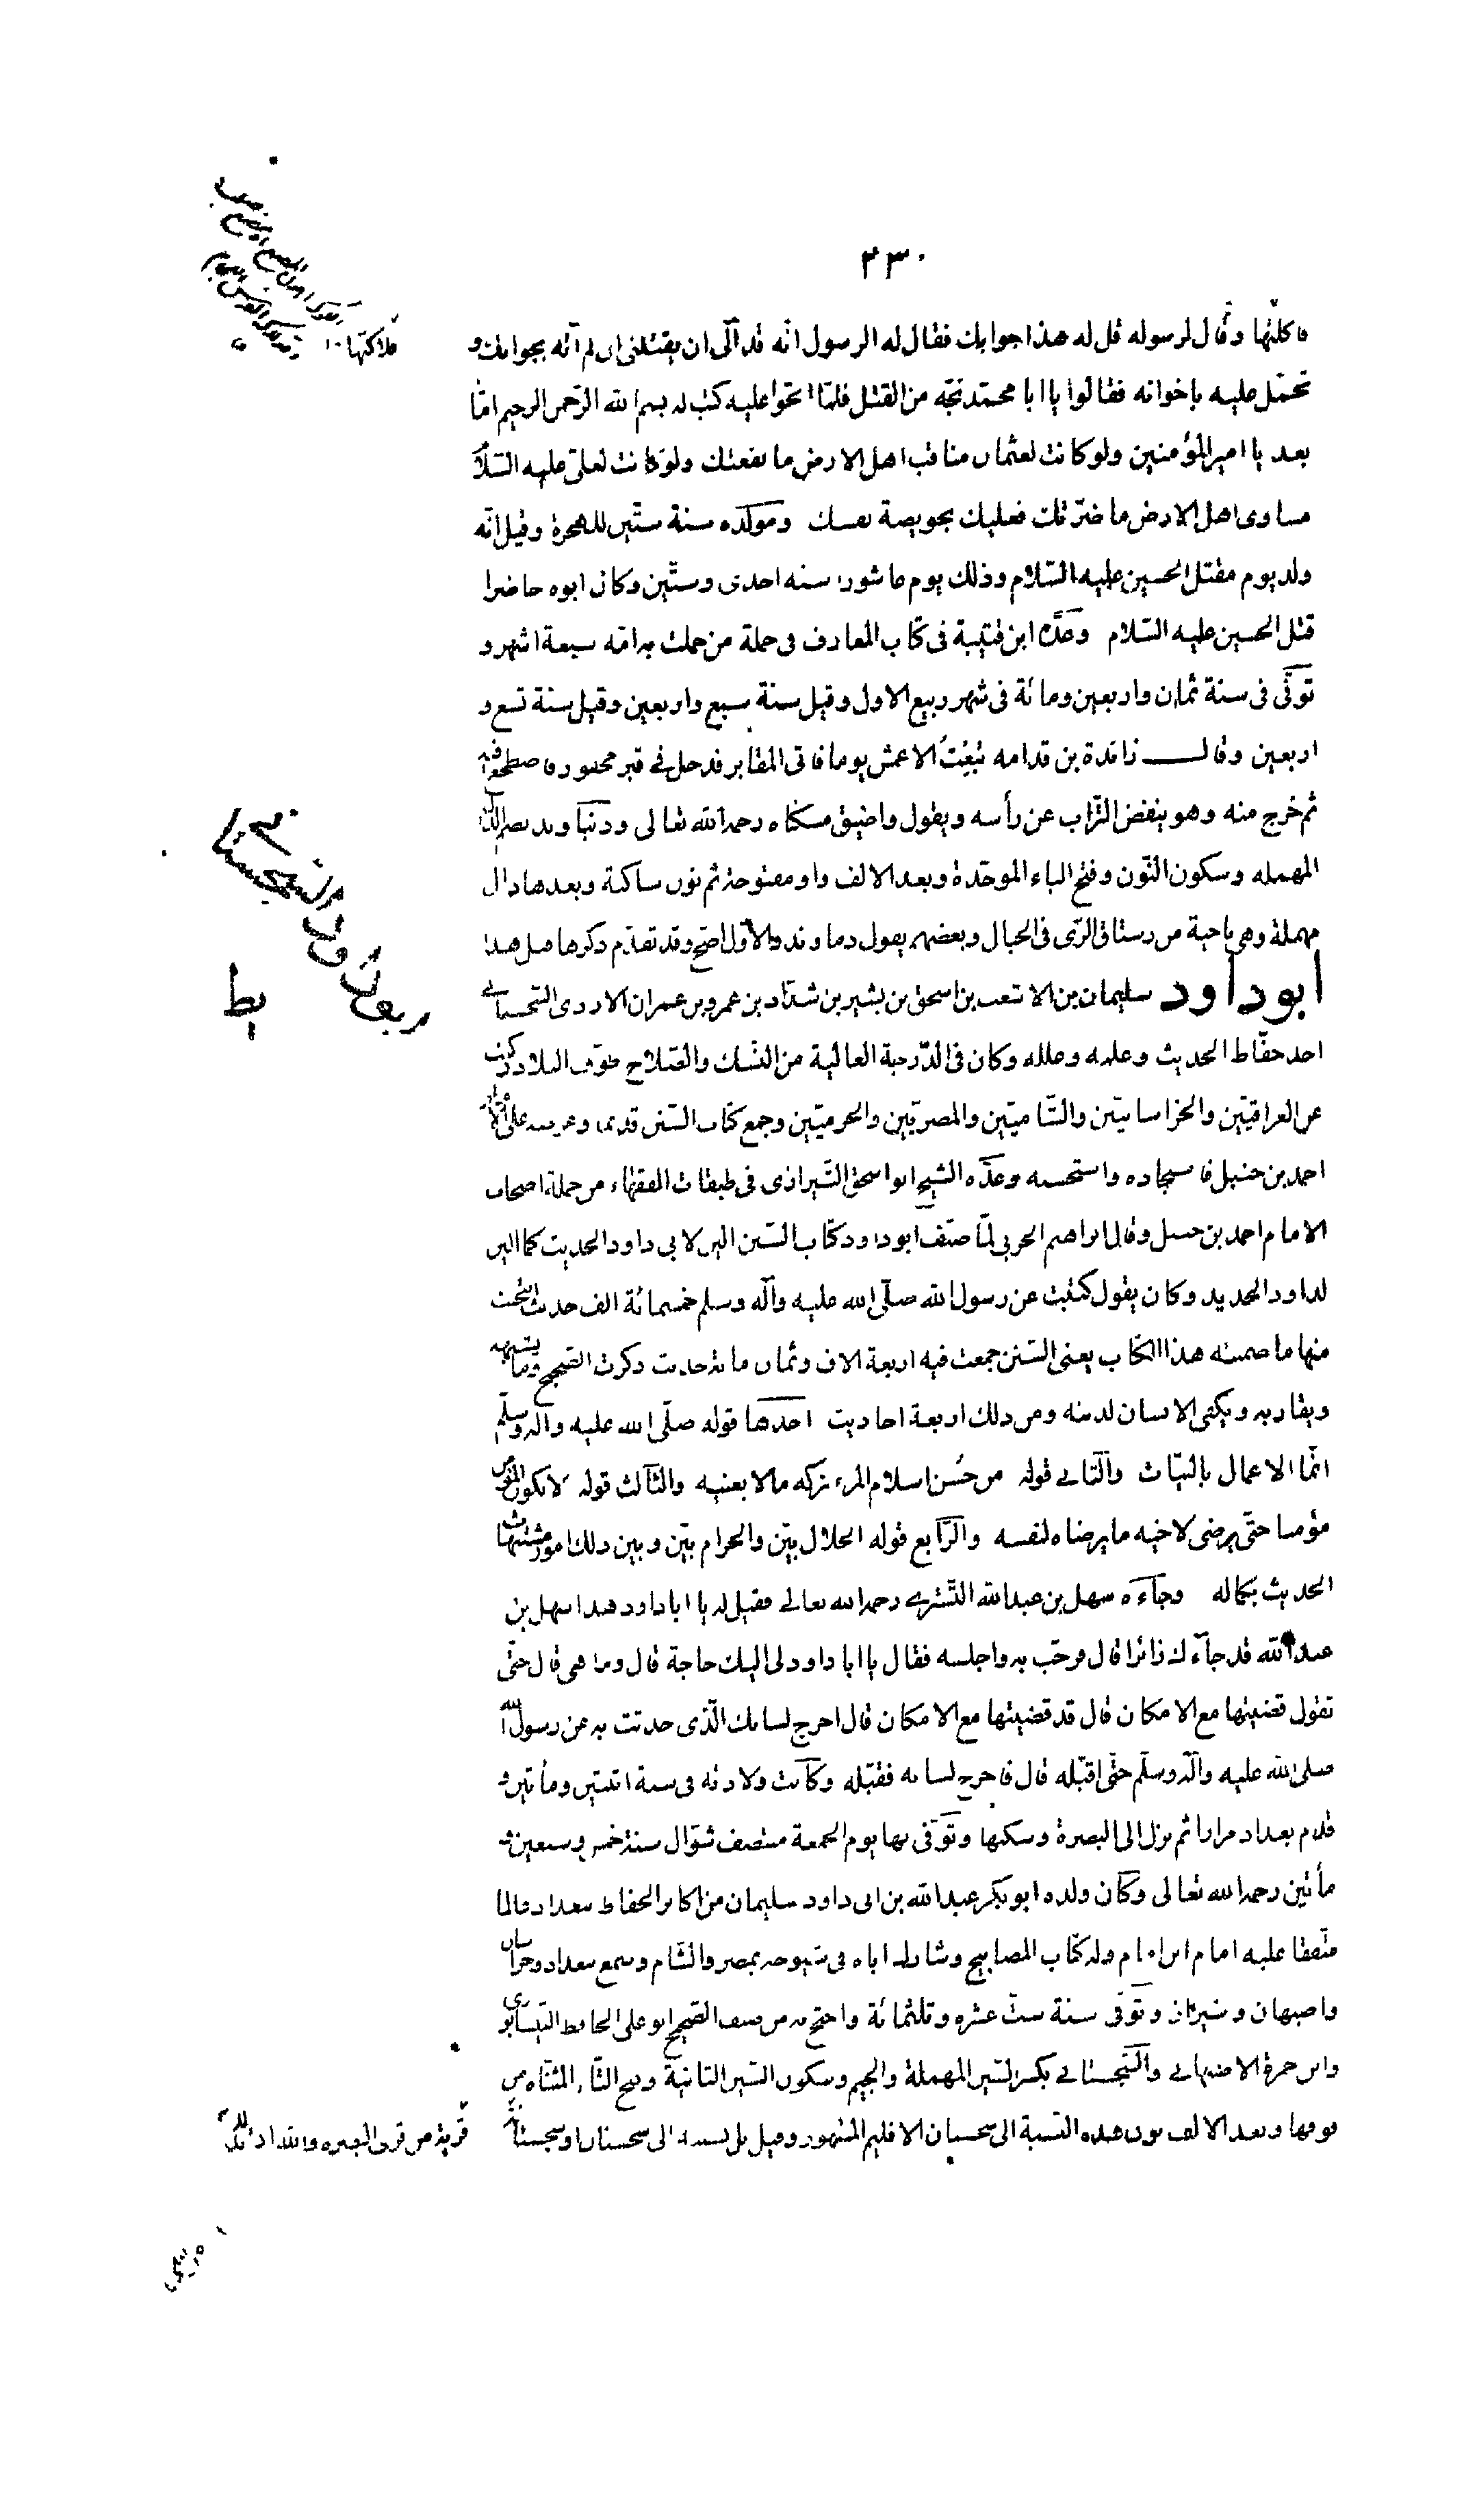 ٢٣٠
فاكلتها وقال لرسوله قل له هذا جوابك فقال له الرسول انّه قد آلى ان يقتلنى ان لم آته بجوابك و
تحمّل عليه باخوانه فقالوا يا ابا محمّد نجّه من القتل فلمّا الحّوا عليه كتب له بسم الله الرّحمن الرحيم امّا
بعد يا امير المؤمنين ولو كانت لعثمان مناقب اهل الارض ما نفعتك ولو كانت لعلىّ عليه السّلام
مساوى اهل الارض ما ضرّتك فعليك بخويصة نفسك ومولده سنة ستّين للهجرة وقيل انّه
ولد يوم مقتل الحسين عليه السّلام وذلك يوم عاشورا سنه احدى وستّين وكان ابوه حاضرا
قتل الحسين عليه السّلام وعدّه ابن قتيبة فى كتاب المعارف فى جملة من حملت به امّه سبعة اشهر و
توفّى فى سنة ثمان واربعين ومائة فى شهر ربيع الاول وقيل سنة سبع واربعين وقيل سنة تسع و
اربعين وقال زائدة بن قدامه تبعت الاعمش يوما فاتى المقابر فدخل فى قبر محفور فاضطجع فيه
ثم خرج منه وهو ينفض التّراب عن رأسه ويقول واضيق مسكناه رحمه الله تعالى ودنباوند بضم الدّال
المهمله وسكون النّون وفتح الباء الموحّدة وبعد الالف واو مفتوحة ثم نون ساكنة وبعدها دال
مهملة وهى ناحية من رستاق الرّى فى الجبال وبعضهم يقول دماوند والاوّل اصحّ وقد تقدّم ذكرها قبل هذا
ابو داود سليمان بن الاشعث بن اسحق بن بشير بن شدّاد بن عمرو بن عمران الازدى السّجستانى
احد حفّاظ الحديث وعلمه وعلله وكان فى الدّرجة العالية من النّسك والصّلاح طوّف البلاد وكتب
عن العراقيّين والخراسانيّين والشّاميّين والمصريّين والحرميّين وجمع كتاب السّنن قديما وعرضه على الامام
احمد بن حنبل فاستجاده واستحسنه وعدّه الشيخ ابو اسحق الشّيرازى فى طبقات الفقهاء من جملة اصحاب
الامام احمد بن حنبل وقال ابراهيم الحربى لمّا صنّف ابو داود كتاب السّنن الين لابى داود الحديث كما الين
لداود الحديد وكان يقول كتبت عن رسول الله صلّى الله عليه وآله وسلم خمسمائة الف حديث انتخبت
منها ما ضمنته هذا الكتاب يعنى السّنن جمعت فيه اربعة الاف وثمان مائة حديث ذكرت الصّحيح وما يشبهه
ويقاربه ويكفى الانسان لدينه من ذلك اربعة احاديث احدها قوله صلّى الله عليه وآله وسلّم
انّما الاعمال بالنيّات والثانى قوله من حُسن اسلام المرء تركه مالا يعنيه والثّالث قوله لا يكون المؤمن
مؤمنا حتّى يرضى لاخيه ما يرضاه لنفسه والرّابع قوله الحلال بيّن والحرام بيّن وبين ذلك امور مشتبهات
الحديث بكماله وجاءه سهل بن عبدالله التّسترى رحمه الله تعالى فقيل له يا ابا داود هذا سهل بن
عبدالله قد جاءك زائرا قال فرحّب به واجلسه فقال يا ابا داود لى اليك حاجة قال وما هى قال حتّى
تقول قضيتها مع الامكان قال قد قضيتها مع الامكان قال اخرج لسانك الّذى حدثت به عن رسول الله
صلى الله عليه وآله وسلّم حتّى اقبّله قال فاخرج لسانه فقبّله وكانت ولادته فى سنة اثنتين ومأتين و
قدم بغداد مرارا ثم نزل الى البصرة وسكنها وتوفّى بها يوم الجمعة منتصف شوّال سنة خمس وسبعين و
مأتين رحمه الله تعالى وكان ولده ابو بكر عبدالله بن ابى داود سليمان من اكابر الحفاظ ببغداد عالما
متّفقا عليه امام ابن امام وله كتاب المصابيح وشارك اباه فى شيوخه بمصر والشّام وسمع ببغداد وخراسان
واصبهان وشيراز وتوفّى سنة ستّ عشره وثلثمائة واحتج به من صنف الصّحيح ابو على الحافظ النّيسابورى
وابن حمزة الاصبهانى والسّجستانى بكسر السّين المهملة والجيم وسكون السّين الثانية وفتح التّاء المثنّاه من
فوقها وبعد الالف نون هذه النّسبة الى سجستان الاقليم المشهور وقيل بل نسبته الى سجستان او سجستانة
قرية من قرى البصره والله اعلم بذلك
ابو داود السّجستانى